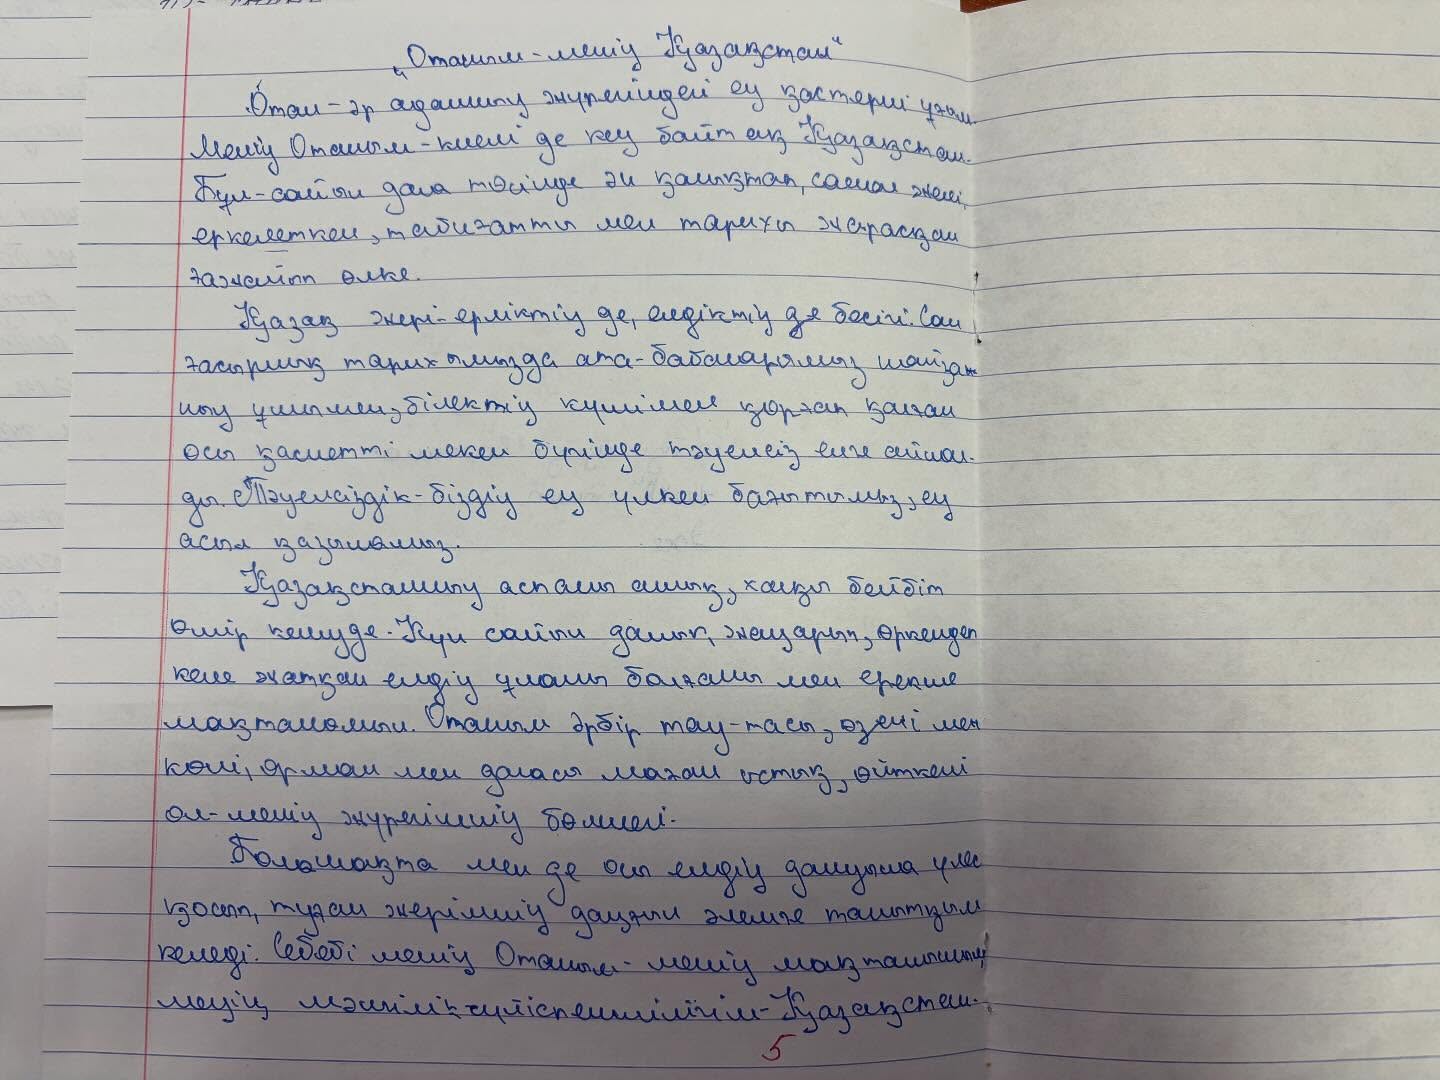 „Отаным-менің Қазақстан"
Отан-әр адамның жүрегіндегі ең қастерлі ұғым.
Менің Отаным-киелі де кең байтақ Қазақстан.
Бұл-сайын дала төсінде ән қалықтап, самал желі
еркелеткен, табиғатты мен тарихы жарасқан
ғажайып өлке.
Қазақ жері-ерліктің де, елдіктің де бесігі. Сан
ғасырлық тарихымызда ата-бабаларымыз найзан
ның ұшымен, білектің күшімен қорғап қалған
осы қасиетті мекен бүгінде тәуелсіз елге айнал-
ды. Тәуелсіздік-біздің ең үлкен бағытымыз, ең
асыл қазынамыз.
Қазақстанның аспаны ашық, халқы бейбіт
өмір кешуде. Күн сайын дамып, жаңарып, өркендеп
келе жатқан елдің ұланы болғаны мен ерекше
мақтанамын. Отаным әрбір тау-тасы, өзені мен
көлі, орман мен даласы маған ыстық, өйткені
ол-менің жүрегімнің бөлшегі.
Болашақта мен де осы елдің дамуына үлес
қосып, туған жерімнің даңғын әлемге танытқым
келеді. Себебі менің Отаным-менің мақтанышым,
менің мәңгілік сүйіспеншілігім-Қазақстан.
5